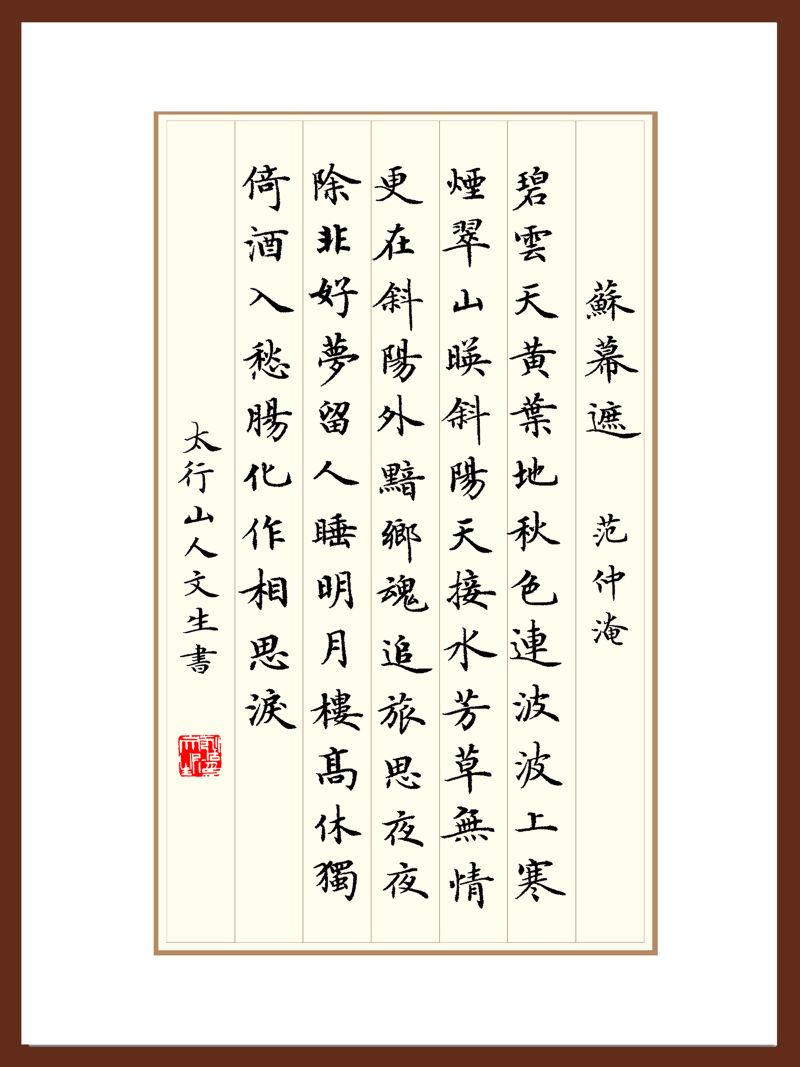 蘇幕遮 范仲淹
碧雲天黃葉地秋色連波波上寒
煙翠山暎斜陽天接水芳草無情
更在斜陽外黯鄉魂追旅思夜夜
除非好夢留人睡明月樓高休獨
倚酒入愁腸化作相思淚
太行山人文生書